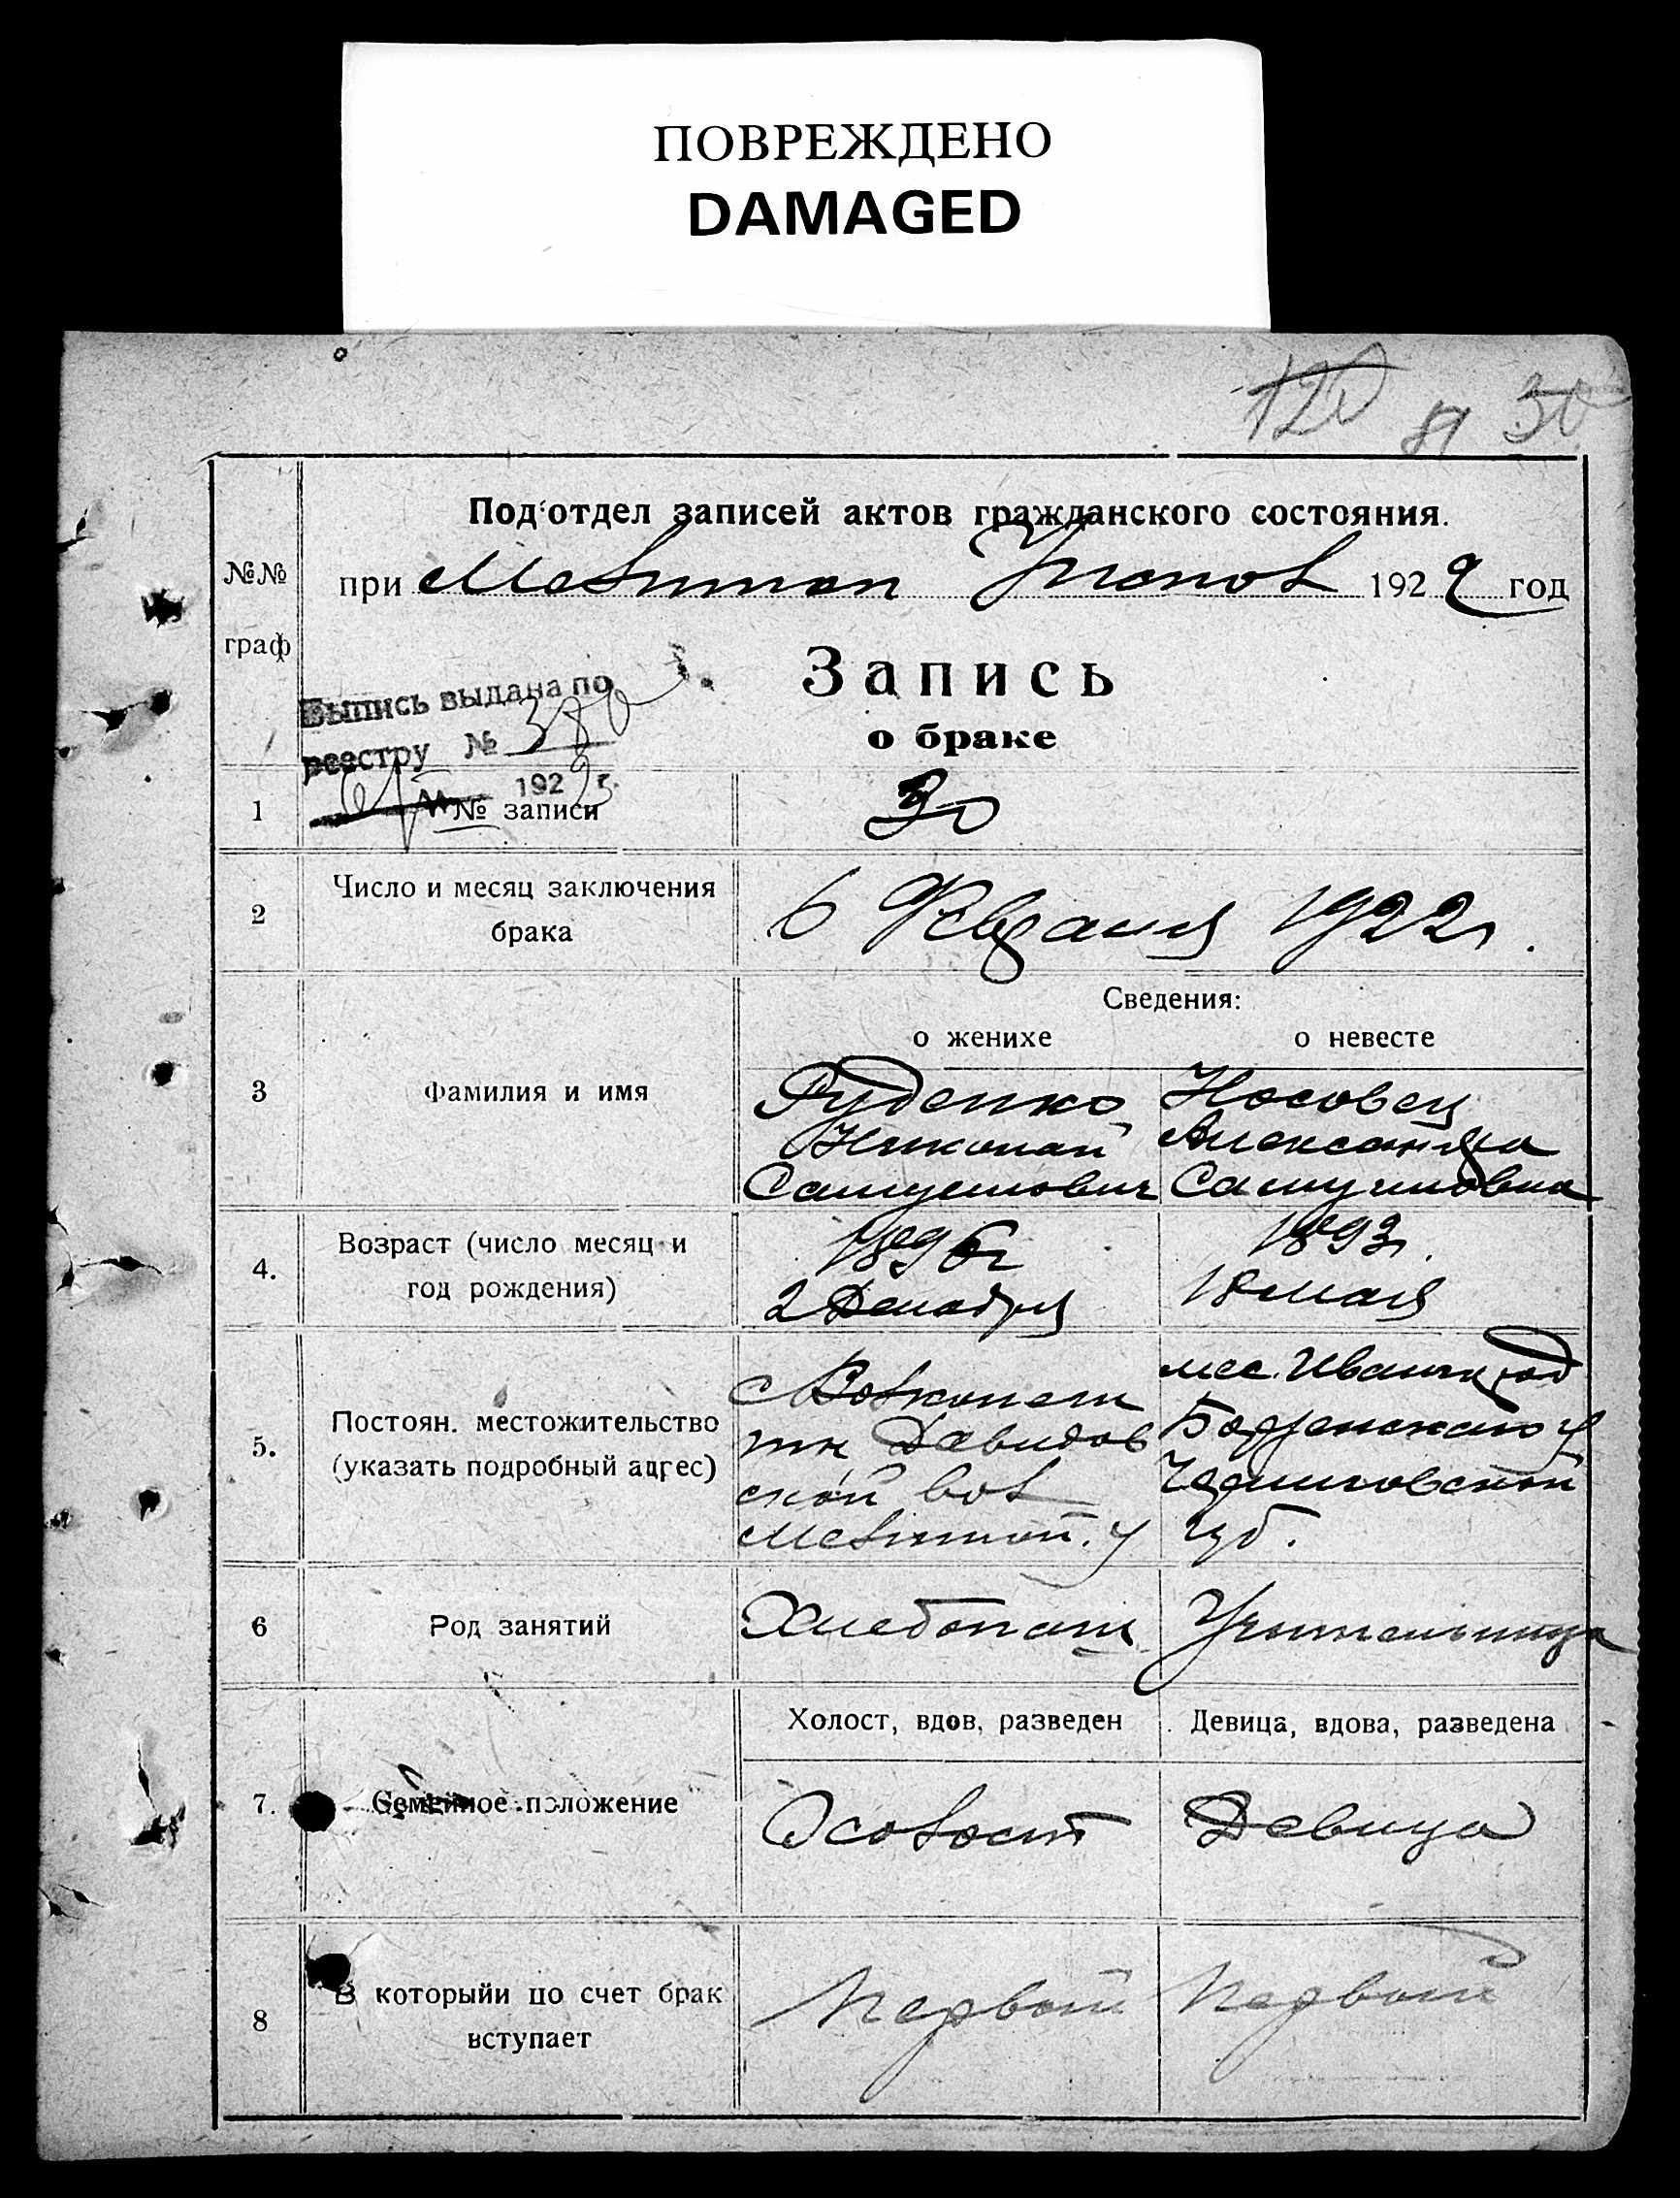 ПОВРЕЖДЕНО
DAMAGED
120 81 30
Под‘отдел записей актов гражданского состояния.
№№
граф
при Мелитоп Уполов 1922 год
Запись
о браке
Выпись выдана по
реестру №
192 г.
1 №№ записи 30
2 Число и месяц заключения
брака
6 Февраля 1922г.
Сведения:
о женихе о невесте
3 Фамилия и имя
Руденко Носовец
Николай Александра
Самуилович Самуиловна
4. Возраст (число месяц и
год рождения)
1896г 1893г.
2 Декабря 18 мая
5. Постоян. местожительство
(указать подробный адрес)
с
Давидов
ской вол
Мелитоп. у
мес. Ивангород
Борзенского у
Черниговской
губ.
6 Род занятий Хлебопаш Учительница
Холост, вдов, разведен Девица, вдова, разведена
7. Семейное положение Холост Девица
8 В которыйи по счет брак
вступает
Первый Первый